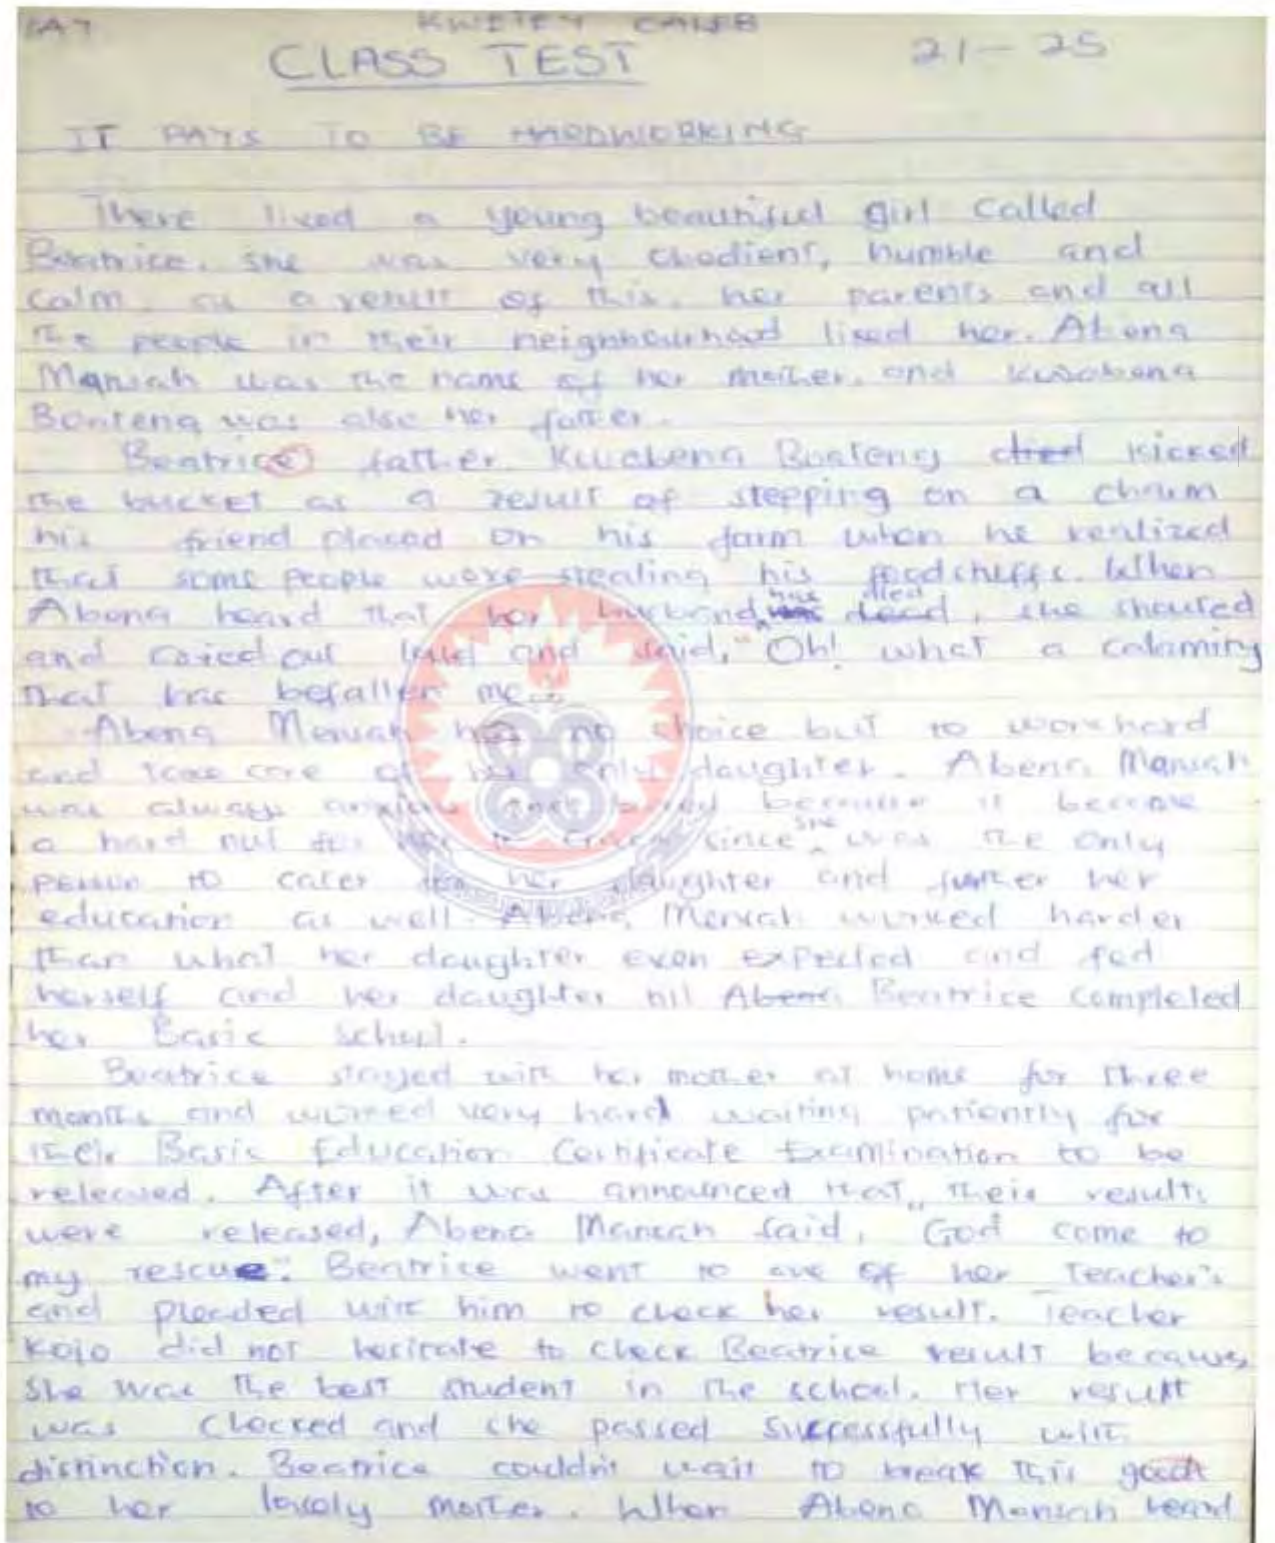 KWETEY CALEB
CLASS TEST 21-25
IT PAYS TO BE HARDWORKING
There lived a young beautiful girl called
Beatrice. she was very obedient, humble and
calm. as a result of this, her parents and all
the people in their neighbourhood liked her. Abena
Mansah was the name of her mother, and Kwabena
Boateng was also her father.
Beatrice father Kwabena Boateng died kicked
the bucket as a result of stepping on a charm
his friend plased on his farm when he realized
that some people were stealing his foodstuffs. When
Abena heard that her husband has died dead, she shouted
and cried out loud and said, "Oh! what a calaming
that has befallen me
Abena Mensah has no choice but to work hard
and take care of her only daughter. Abena Mansah
was always anxious and bored because it became
a hard nut for her to crack since she was the only
person to cater for her daughter and further her
education as well. Abena Mensah worked harder
than what her daughter even expected and fed
herself and her daughter till Abena Beatrice completed
her Basic school.
Beatrice stayed with her mother at home for three
months and worked very hard waiting patiently for
their Basic Education Certificate Examination to be
released. After it was announced that, their results
were released, Abena Mansah said, "God come to
my rescue". Beatrice went to one of her Teacher's
and pleaded with him to check her result. Teacher
Kojo did not hesitate to check Beatrice result because,
She was the best student in the school. Her result
was checked and she passed successfully with
distinction. Beatrice couldn't wait to break this good
to her lovely mother. When Abena Mansah heard